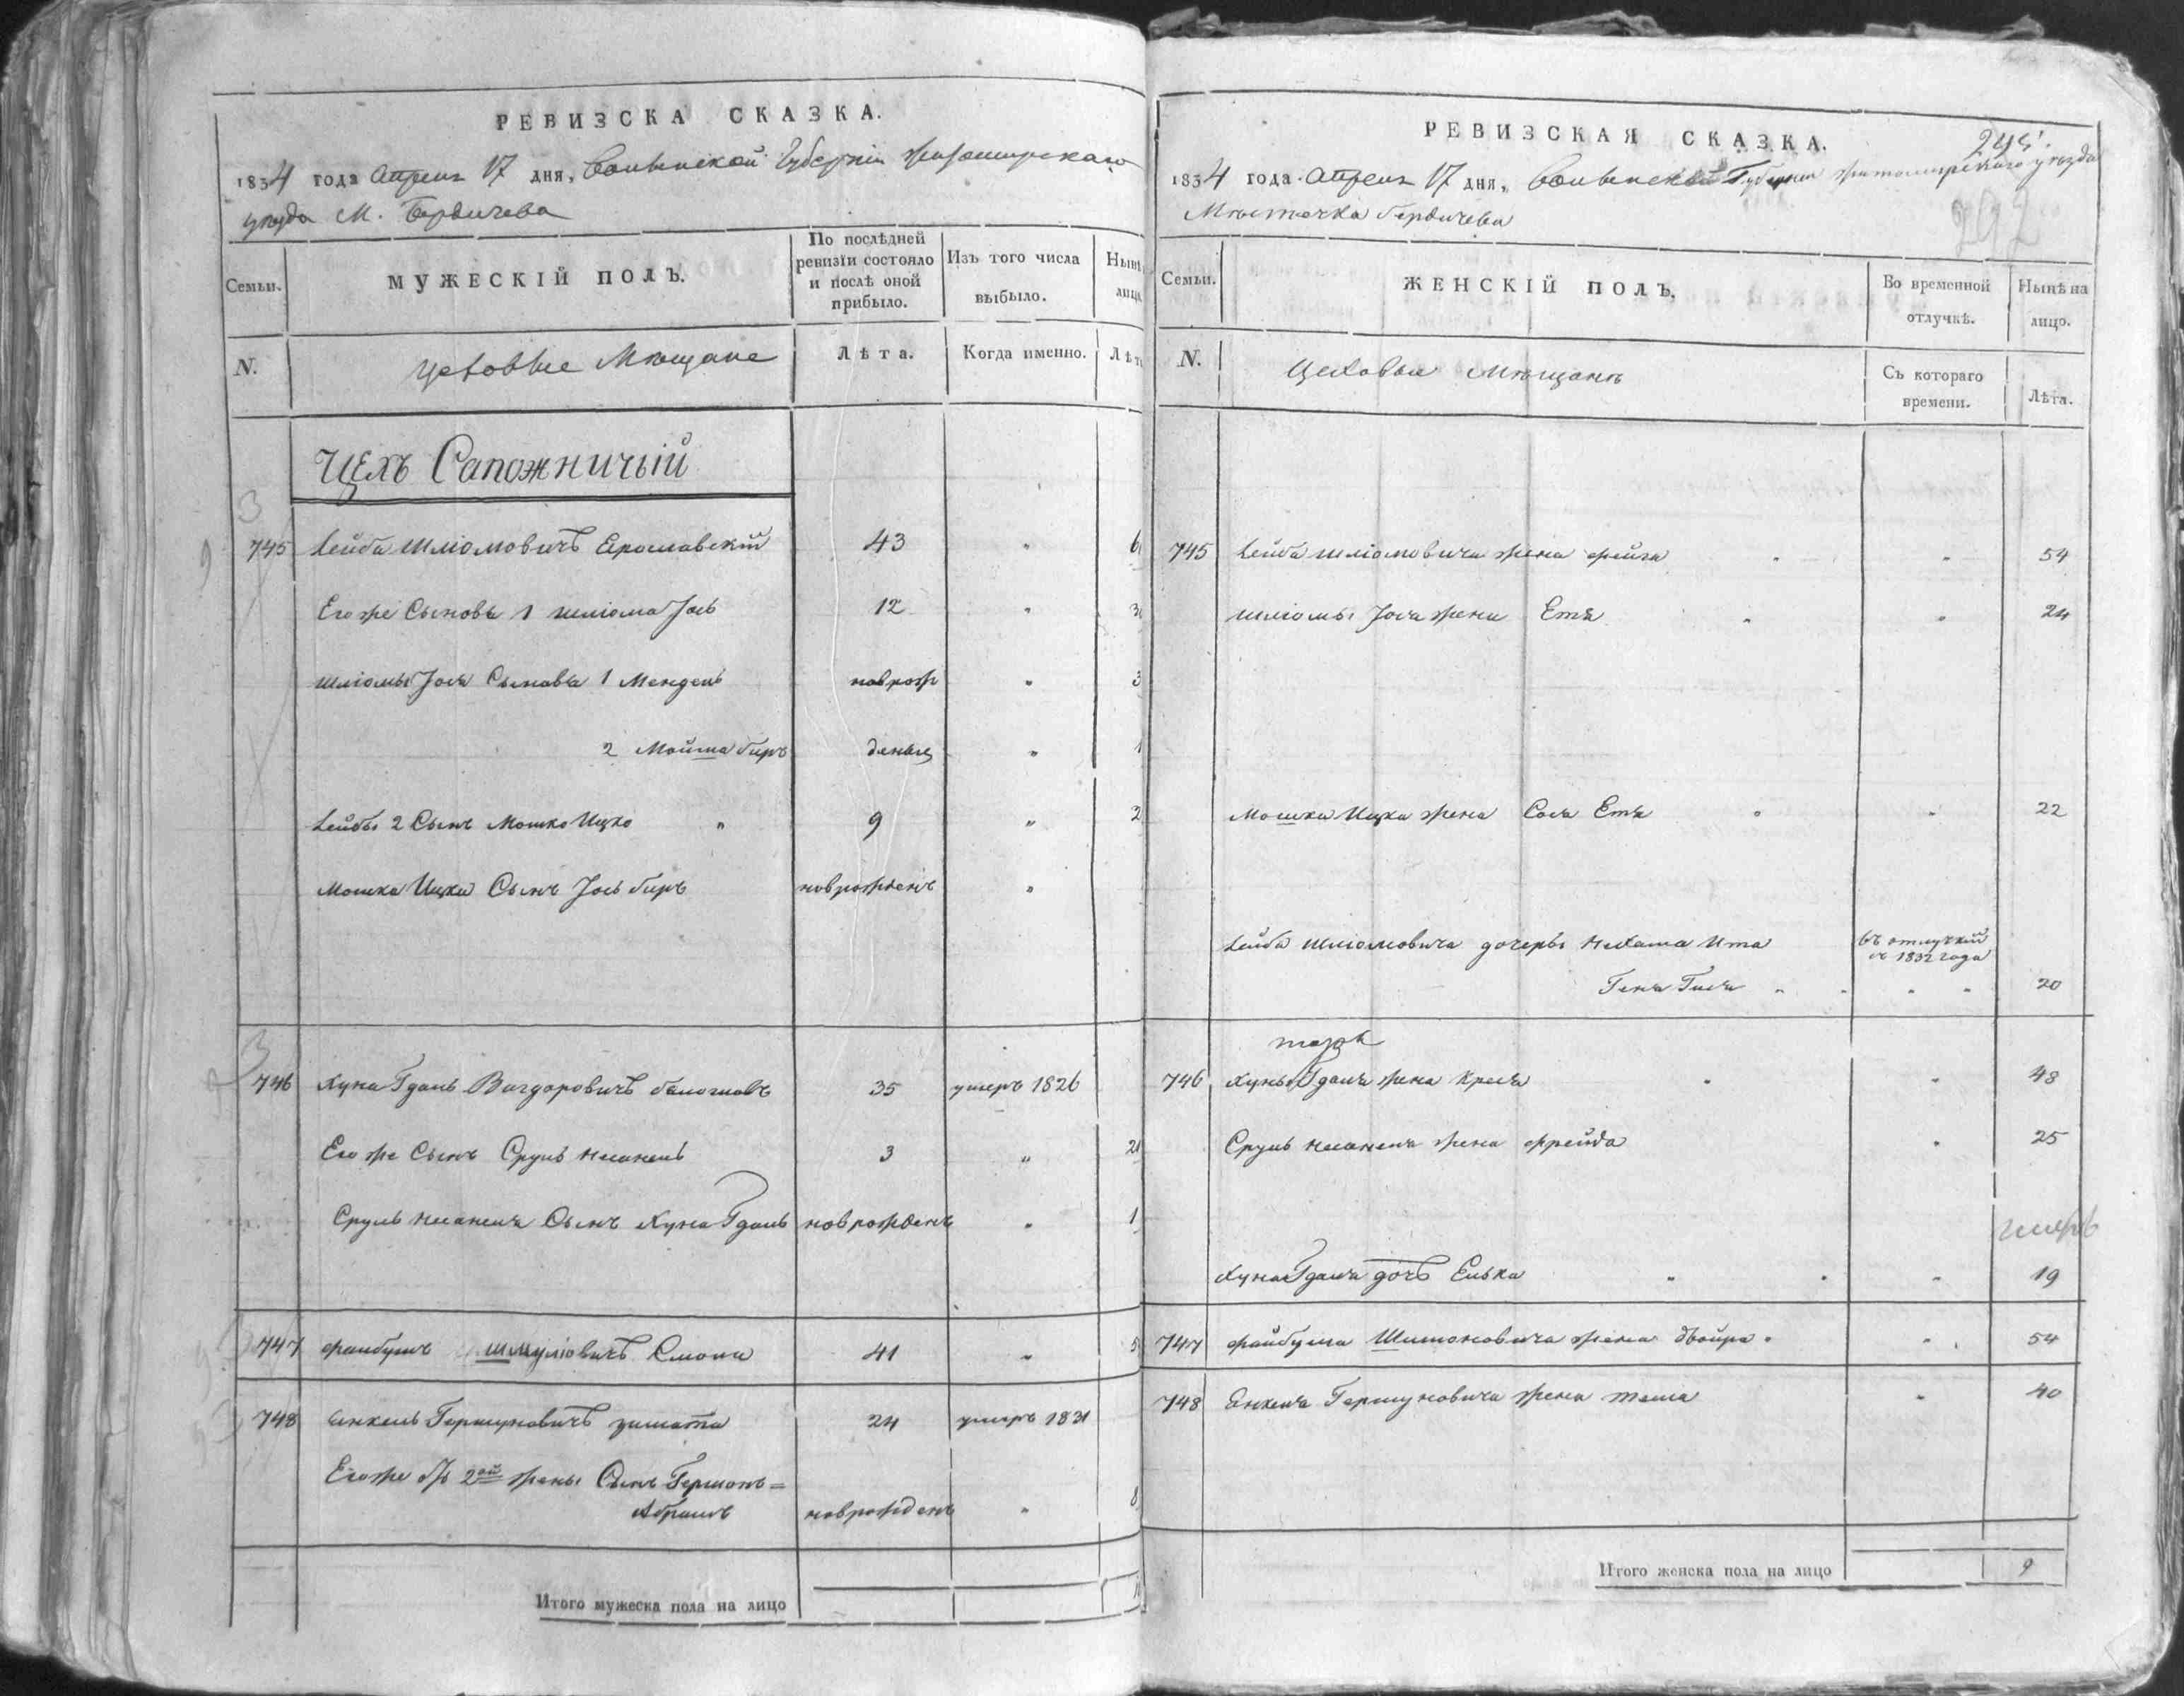 РЕВИЗСКА СКАЗКА.
1834 года Апреля 17 дня, Волынской Губернии Житомирскаго
уезда М. Бердичева
Семьи.
МУЖЕСКІЙ ПОЛЪ.
По послѣдней
ревизіи состояло
и послѣ оной
прибыло.
Изъ того числа
выбыло.
Нынѣ
лицо
N.
Цеховые Мещане
Лѣта.
Когда именно.
Лѣт
Цехъ Сапожничьій
3
745 Лейба Шліомовичъ Ерославскій 43 "
Его же Сыновья 1 Шліома Іось 12 "
Шліомы Іося Сыновья 1 Мендель новрож "
2 Мойша Биръ деные "
Лейбы 2 Сынъ Мошко Ицко " 9 " 2
Мошка Ицки Сынъ Іось биръ новрожденъ "
3
746 Хуна Гдаль Вигдоровичъ 35 умеръ 1826
Его же Сынъ Сруль Несанель 3 "
Сруль Несанеля Сынъ Хуна Гдаль новрожденъ " 1
747 Файбушъ Шмуліовичъ 41 "
748 Янкель Гершуновичъ 24 умеръ 1831
Его же отъ 2ой жены Сынъ Гершонъ=
Абрамъ новрожденъ " 8
Итого мужеска пола на лицо
РЕВИЗСКАЯ СКАЗКА.
292
1834 года Апреля 17 дня, Волынской Губернии Житомирскаго уезда
Мѣстечка Бердичева
Семьи.
ЖЕНСКІЙ ПОЛЪ.
Во временной
отлучкѣ.
Нынѣ на
лицо.
N.
Цеховыя Мѣщанѣ
Съ котораго
времени.
Лѣта.
745 Лейба Шліомовича жена Фейга " " 54
Шліомы Іося жена Етя " " 24
Мошки Ицка жена Сося Етя " " 22
Лейба Шліомовича дочеры Нехама Ита въ отлучкѣ
съ 1832 года
Геня Гися " " " " 20
746 Хуны Гдаля жена Крейся " " 48
Сруль Несанеля жена Фрейда " 25
Хуна Гдаля дочь Елька " " " 19
747 Файбуша Шимоновича жена Двойра " " 54
748 Янкеля Гершуновича жена Темa " 40
Итого женска пола на лицо 9